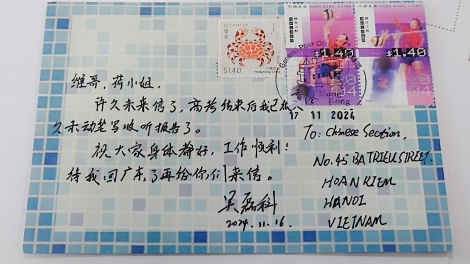 $1.40
$1.40
$1.40
17 11 2024
Hong Kong
维哥,荷小姐,
许久未来信了,高考结束后我已很久
久未动笔写收听报告了。
祝大家身体都好,工作顺利!
待我回广东了再给你们来信。
吴磊科
2024.11.16.
To: Chinese Section,
No.45 BA TRIEU STREET.
HOAN KIEM
HANOI
VIETNAM